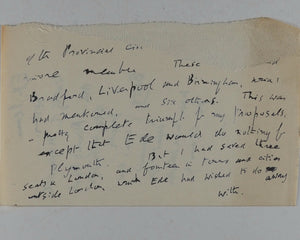 of the Provincial
more member These
Bradford, Liverpool and Birmingham, This was
had mentioned, and six others.
- pretty complete triumph for my proposals,
except that Ede would do nothing for
Plymouth. But I had saved three
seats in London, and fourteen in towns and cities
outside London which Ede had wished to do away
with.